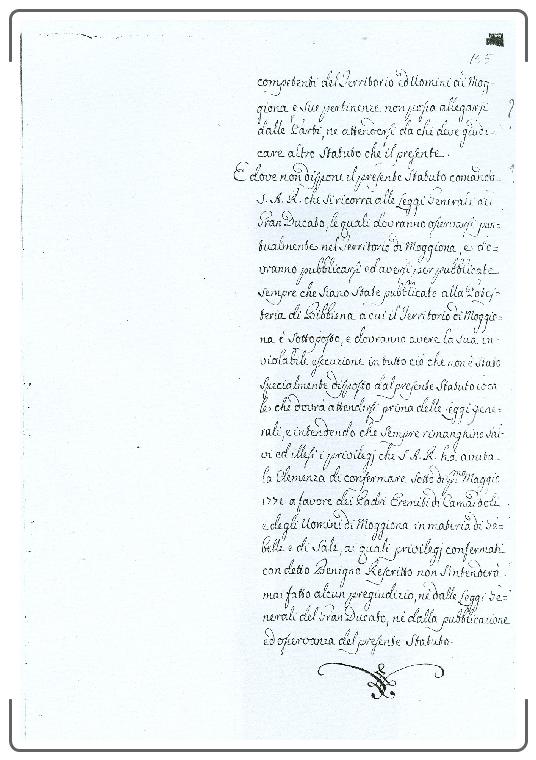 155
competenti del Territorio ed Uomini di Mog-
giona, e sue pertinenze non possa allegarsi
dalle Parti, ne attendersi da chi deve giudi-
care altro Statuto che il presente.
E dove non dispone il presente Statuto comanda
S. A. R. che si ricorra alle Leggi Generali del
Gran Ducato, le quali dovranno osservarsi pun-
tualmente nel Territorio di Moggiona, e do-
vranno pubblicarsi ed aversi per pubblicate
sempre che siano State pubblicate alla Potes-
teria di Bibbiena a cui il Territorio di Moggio-
na è Sottoposto, e dovranno avere la sua in-
violabile esecuzione in tutto ciò che non è Stato
specialmente disposto dal presente Statuto loca-
le, che dovrà attendersi prima delle Leggi gene-
rali, e intendendo che sempre rimanghino Sal-
vi ed illesi i privilegj che S. A. R. ha avuta
la Clemenza di confermare Sotto dì Maggio
1771 a favore dei Padri Eremiti di Camaldoli
e degli Uomini di Moggiona in materia di Ga-
belle e di Sale, a' quali privilegj confermati
con detto Benigno Rescritto non s'intenderà
mai fatto alcun pregiudizio, nè dalle Leggi Ge-
nerali del Gran Ducato, nè dalla pubblicazione
ed osservanza del presente Statuto.